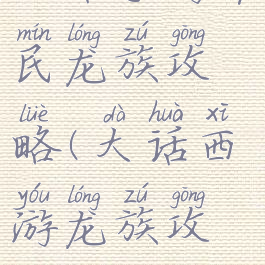 mín lóng zú gōng
民龙族攻
lüè dà huà xī
略(大话西
yóu lóng zú gōng
游龙族攻